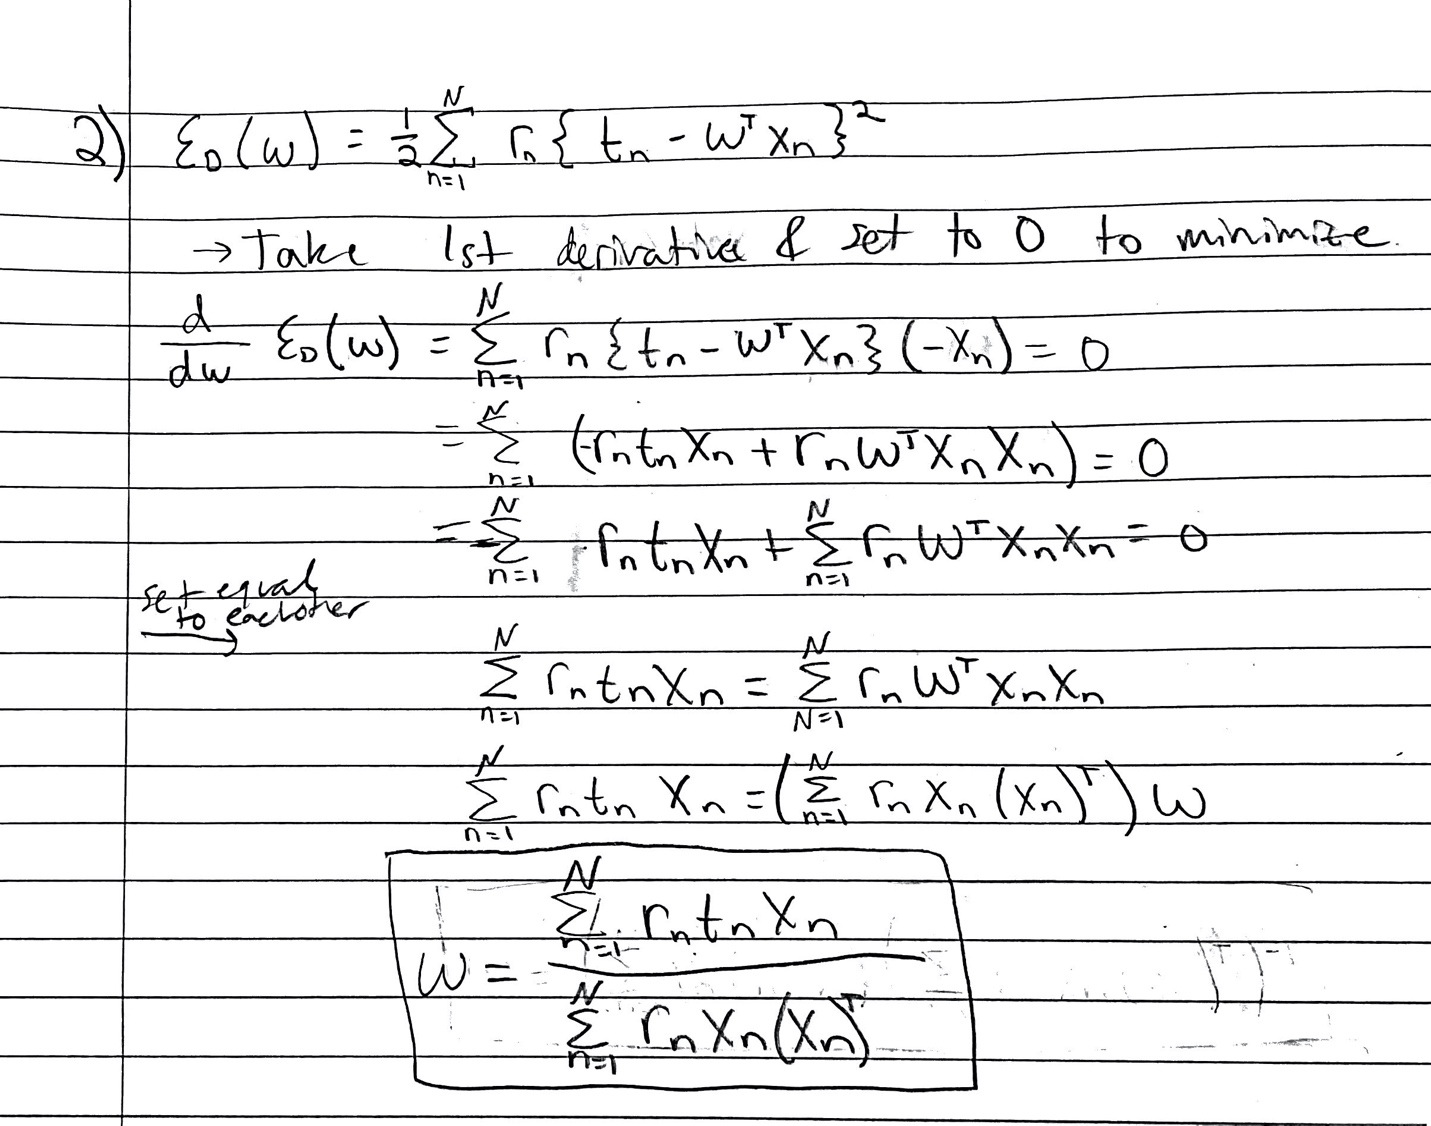 2) ℰ_D(w) = 1/2 ∑_{n=1}^{N} r_n { t_n - w^T x_n }^2
→ Take 1st derivative & set to 0 to minimize.
d/dw ℰ_D(w) = ∑_{n=1}^{N} r_n { t_n - w^T x_n } (-x_n) = 0
= ∑_{n=1}^{N} (-r_n t_n x_n + r_n w^T x_n x_n) = 0
= -∑_{n=1}^{N} r_n t_n x_n + ∑_{n=1}^{N} r_n w^T x_n x_n = 0
set equal
to eachother
→
∑_{n=1}^{N} r_n t_n x_n = ∑_{N=1}^{N} r_n w^T x_n x_n
∑_{n=1}^{N} r_n t_n x_n = ( ∑_{n=1}^{N} r_n x_n (x_n)^T ) w
w = ∑_{n=1}^{N} r_n t_n x_n / ∑_{n=1}^{N} r_n x_n (x_n)^T